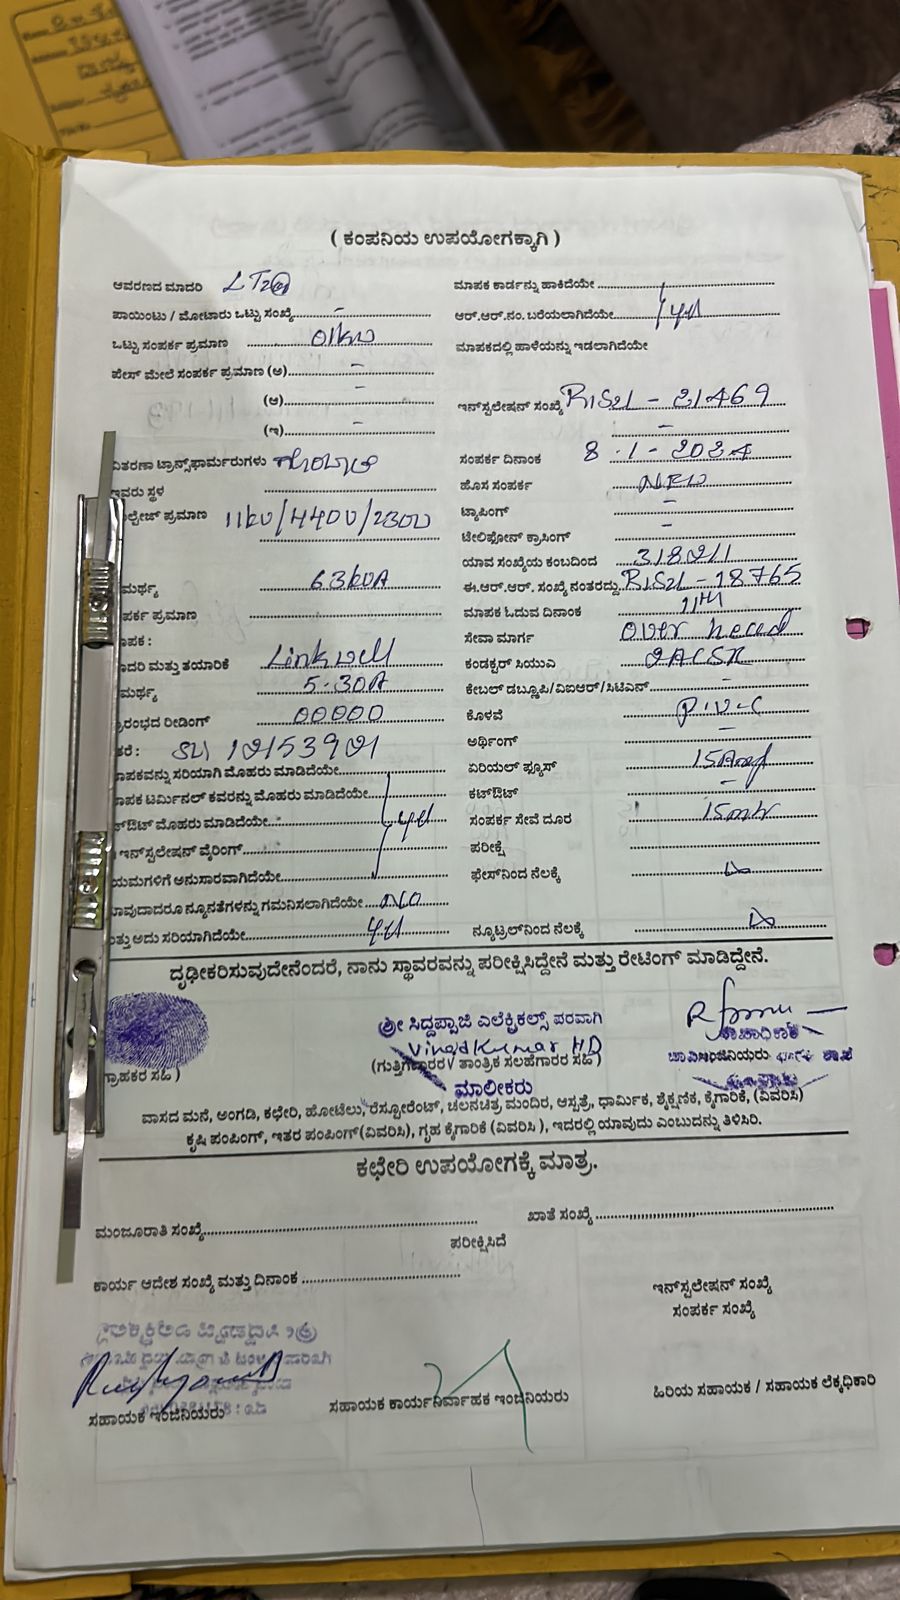 ( ಕಂಪನಿಯ ಉಪಯೋಗಕ್ಕಾಗಿ )
ಆವರಣದ ಮಾದರಿ LT2@
ಪಾಯಿಂಟು / ಮೋಟಾರು ಒಟ್ಟು ಸಂಖ್ಯೆ -
ಒಟ್ಟು ಸಂಪರ್ಕ ಪ್ರಮಾಣ 01kw
ಪೇಸ್ ಮೇಲೆ ಸಂಪರ್ಕ ಪ್ರಮಾಣ (ಅ) -
(ಆ) -
(ಇ) -
ವಿತರಣಾ ಟ್ರಾನ್ಸ್‌ಫಾರ್ಮರುಗಳು
ಇವರು ಸ್ಥಳ
ಲ್ಟೇಜ್ ಪ್ರಮಾಣ 11kv/440v/230v
ಮರ್ಥ್ಯ 63kVA
ಪರ್ಕ ಪ್ರಮಾಣ
ಾಪಕ :
ಾದರಿ ಮತ್ತು ತಯಾರಿಕೆ Linkwell
ಮರ್ಥ್ಯ 5-30A
ಾರಂಭದ ರೀಡಿಂಗ್ 00000
ಕರೆ :
ಾಪಕವನ್ನು ಸರಿಯಾಗಿ ಮೊಹರು ಮಾಡಿದೆಯೇ
ಾಪಕ ಟರ್ಮಿನಲ್ ಕವರನ್ನು ಮೊಹರು ಮಾಡಿದೆಯೇ
ಟ್‌ಔಟ್ ಮೊಹರು ಮಾಡಿದೆಯೇ
ಇನ್‌ಸ್ಟಲೇಷನ್ ವೈರಿಂಗ್
ಯಮಗಳಿಗೆ ಅನುಸಾರವಾಗಿದೆಯೇ
ಾವುದಾದರೂ ನ್ಯೂನತೆಗಳನ್ನು ಗಮನಿಸಲಾಗಿದೆಯೇ NO
ತ್ತು ಅದು ಸರಿಯಾಗಿದೆಯೇ
ಮಾಪಕ ಕಾರ್ಡನ್ನು ಹಾಕಿದೆಯೇ
ಆರ್.ಆರ್.ನಂ. ಬರೆಯಲಾಗಿದೆಯೇ
ಮಾಪಕದಲ್ಲಿ ಹಾಳೆಯನ್ನು ಇಡಲಾಗಿದೆಯೇ
ಇನ್‌ಸ್ಟಲೇಷನ್ ಸಂಖ್ಯೆ RISZL - 21469
-
ಸಂಪರ್ಕ ದಿನಾಂಕ 8-1-2024
ಹೊಸ ಸಂಪರ್ಕ NEW
ಟ್ಯಾಪಿಂಗ್ -
ಟೆಲಿಫೋನ್ ಕ್ರಾಸಿಂಗ್ -
ಯಾವ ಸಂಖ್ಯೆಯ ಕಂಬದಿಂದ
ಈ.ಆರ್.ಆರ್. ಸಂಖ್ಯೆ ನಂತರದ್ದು RISZL - 18765
ಮಾಪಕ ಓದುವ ದಿನಾಂಕ 11TH
ಸೇವಾ ಮಾರ್ಗ Over head
ಕಂಡಕ್ಟರ್ ಸಿಯುಎ 2ACSR
ಕೇಬಲ್ ಡಬ್ಲ್ಯೂಪಿ/ವಿಐಆರ್/ಸಿಟಿಎನ್ -
ಕೊಳವೆ P.V.C
ಅರ್ಥಿಂಗ್ -
ಏರಿಯಲ್ ಫ್ಯೂಸ್ 15Amp
ಕಟ್‌ಔಟ್ -
ಸಂಪರ್ಕ ಸೇವೆ ದೂರ 15mtr
ಪರೀಕ್ಷೆ
ಫೇಸ್‌ನಿಂದ ನೆಲಕ್ಕೆ
ನ್ಯೂಟ್ರಲ್‌ನಿಂದ ನೆಲಕ್ಕೆ
ದೃಢೀಕರಿಸುವುದೇನೆಂದರೆ, ನಾನು ಸ್ಥಾವರವನ್ನು ಪರೀಕ್ಷಿಸಿದ್ದೇನೆ ಮತ್ತು ರೇಟಿಂಗ್ ಮಾಡಿದ್ದೇನೆ.
ಶ್ರೀ ಸಿದ್ದಪ್ಪಾಜಿ ಎಲೆಕ್ಟ್ರಿಕಲ್ಸ್ ಪರವಾಗಿ
Vinod Kumar HD
ಗ್ರಾಹಕರ ಸಹಿ )
(ಗುತ್ತಿಗೆದಾರರ ತಾಂತ್ರಿಕ ಸಲಹೆಗಾರರ ಸಹಿ )
ಮಾಲೀಕರು
ಶಾಖಾಧಿಕಾರಿ
ವಾಸದ ಮನೆ, ಅಂಗಡಿ, ಕಛೇರಿ, ಹೋಟೆಲು, ರೆಸ್ಟೋರೆಂಟ್, ಚಲನಚಿತ್ರ ಮಂದಿರ, ಆಸ್ಪತ್ರೆ, ಧಾರ್ಮಿಕ, ಶೈಕ್ಷಣಿಕ, ಕೈಗಾರಿಕೆ, (ವಿವರಿಸಿ)
ಕೃಷಿ ಪಂಪಿಂಗ್, ಇತರ ಪಂಪಿಂಗ್(ವಿವರಿಸಿ), ಗೃಹ ಕೈಗಾರಿಕೆ (ವಿವರಿಸಿ ), ಇದರಲ್ಲಿ ಯಾವುದು ಎಂಬುದನ್ನು ತಿಳಿಸಿರಿ.
ಕಛೇರಿ ಉಪಯೋಗಕ್ಕೆ ಮಾತ್ರ.
ಮಂಜೂರಾತಿ ಸಂಖ್ಯೆ
ಖಾತೆ ಸಂಖ್ಯೆ
ಪರೀಕ್ಷಿಸಿದೆ
ಕಾರ್ಯ ಆದೇಶ ಸಂಖ್ಯೆ ಮತ್ತು ದಿನಾಂಕ
ಇನ್‌ಸ್ಟಲೇಷನ್ ಸಂಖ್ಯೆ
ಸಂಪರ್ಕ ಸಂಖ್ಯೆ
ಸಹಾಯಕ ಇಂಜಿನಿಯರು
ಸಹಾಯಕ ಕಾರ್ಯನಿರ್ವಾಹಕ ಇಂಜಿನಿಯರು
ಹಿರಿಯ ಸಹಾಯಕ / ಸಹಾಯಕ ಲೆಕ್ಕಧಿಕಾರಿ